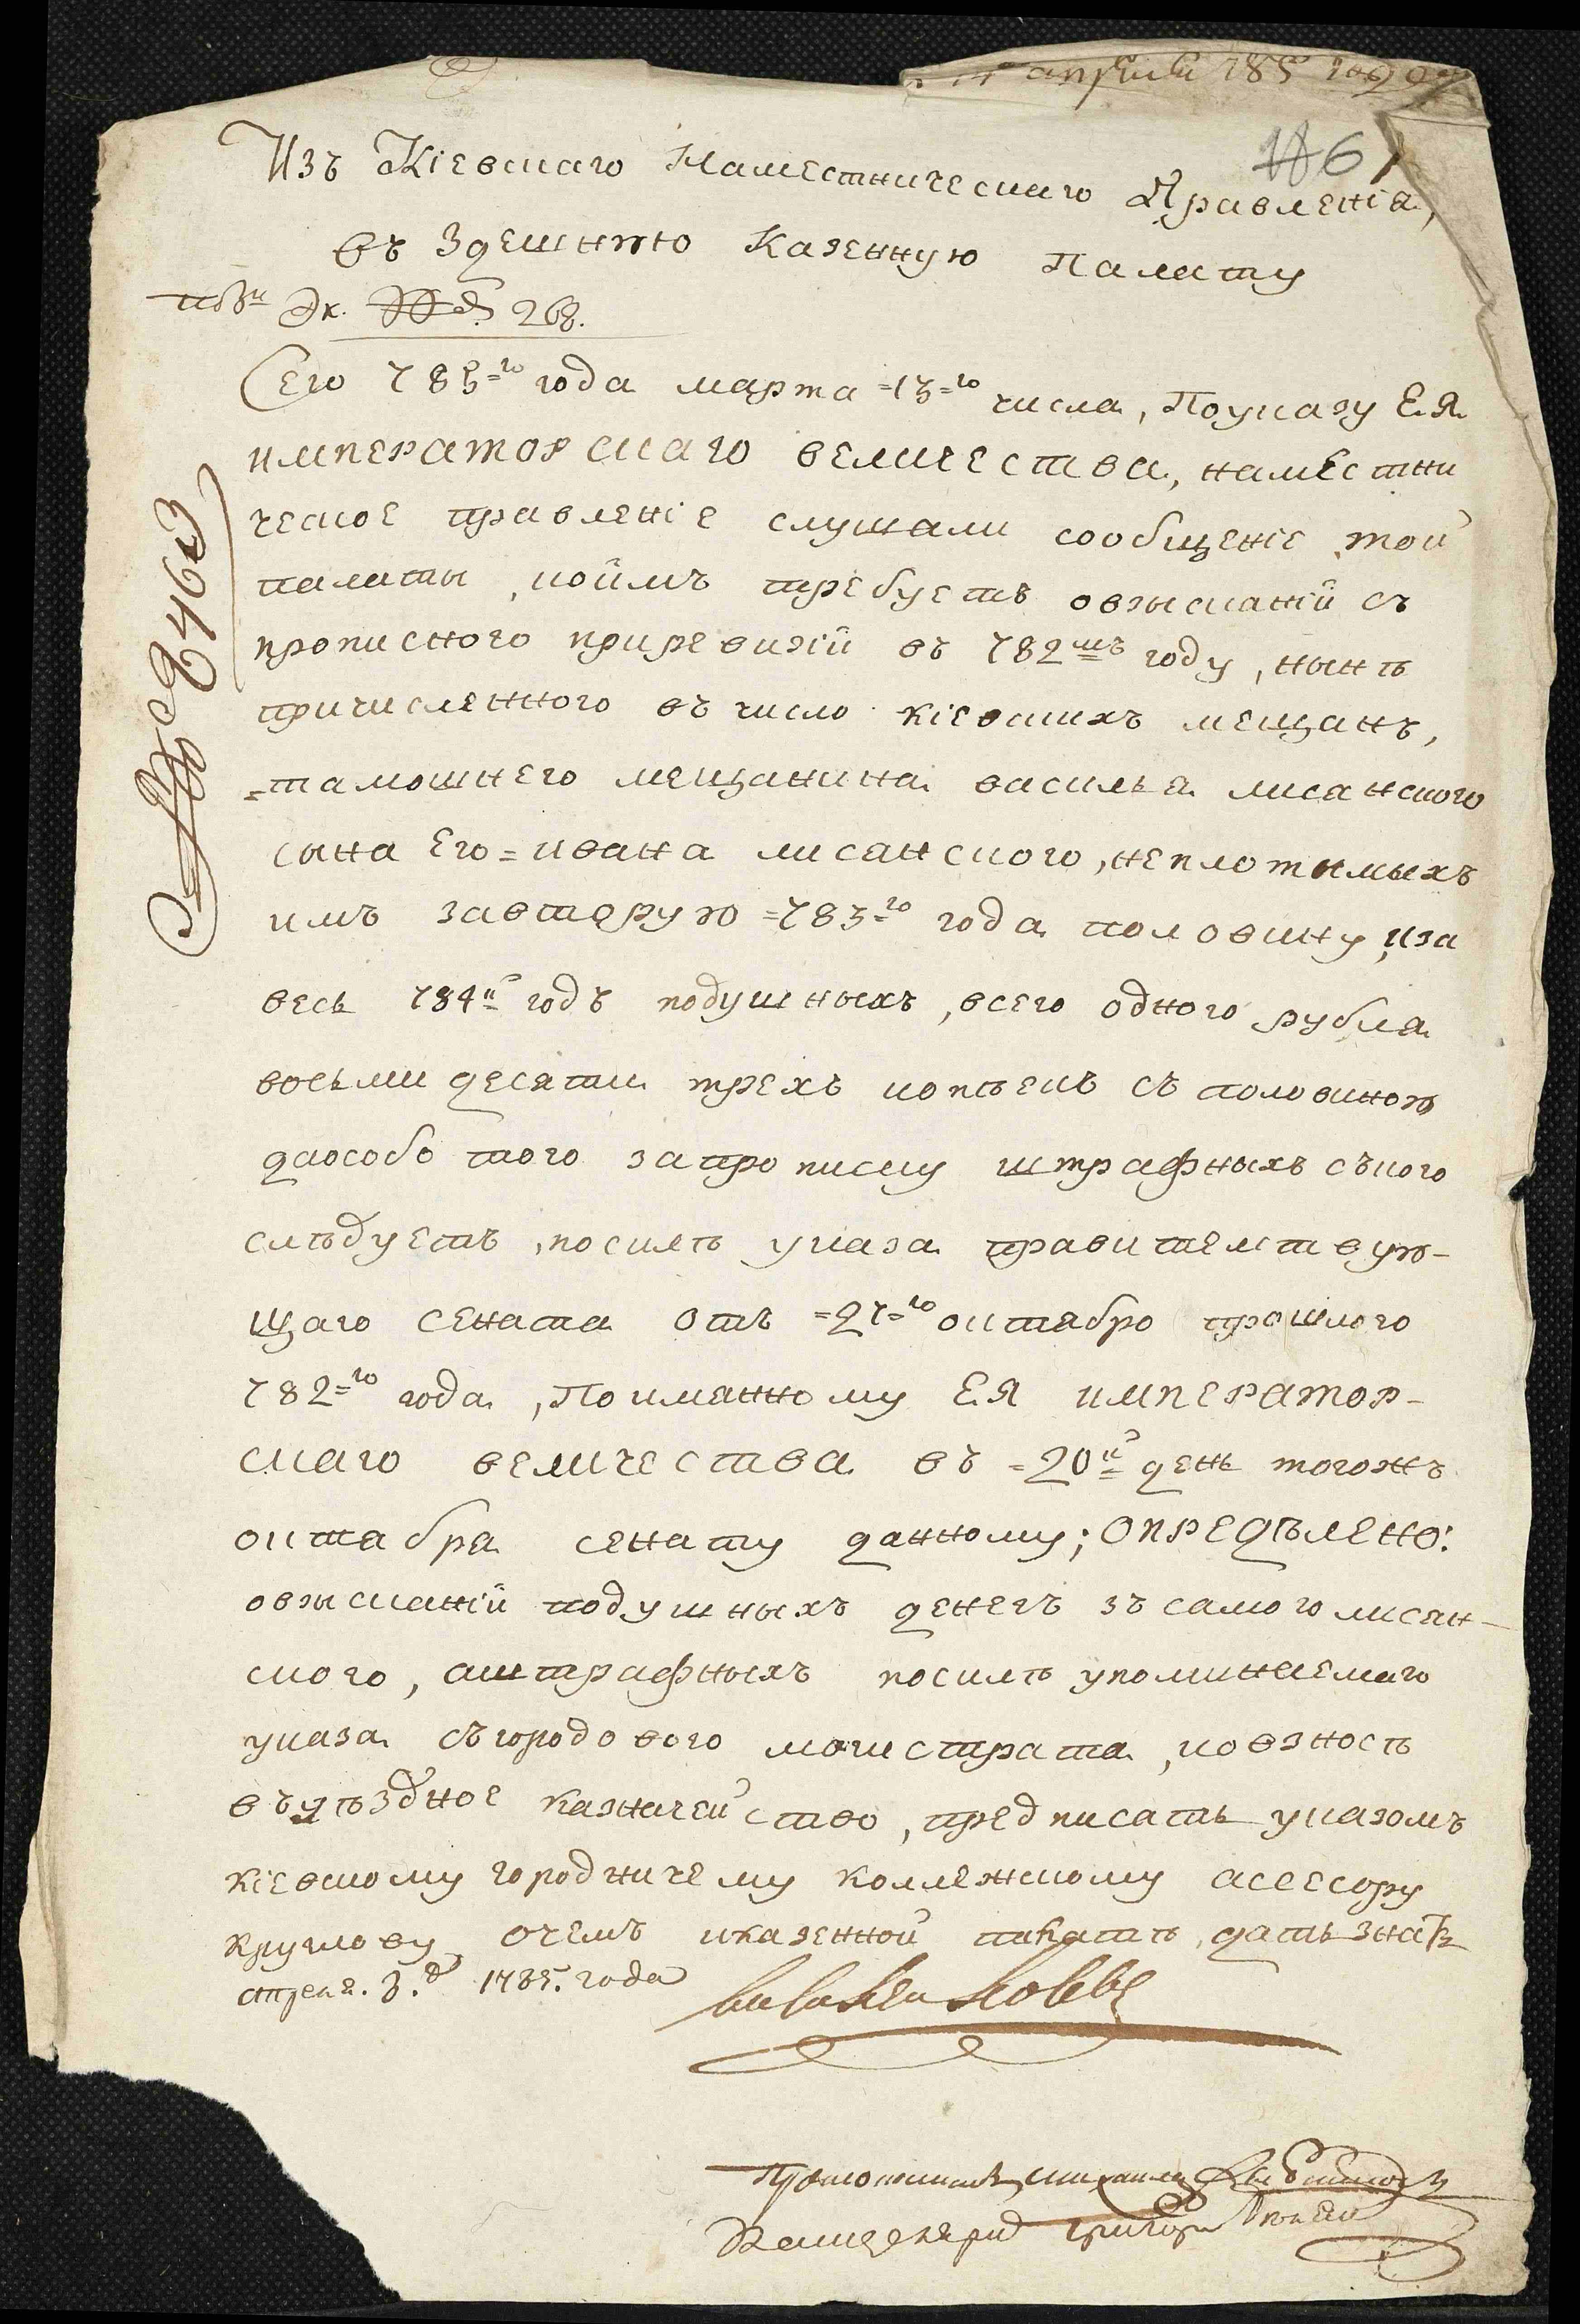 апреля 785 году
186
Изъ Кіевскаго Намѣстническаго Правленія,
въ здешнюю Казенную Палату
по Эк. 268.
№ 2463
Сего 785=го года марта =13=го числа, Поуказу Е.Я.
императорскаго величества, намѣстни
ческое правленіе слушали сообщеніе той
палаты, коимъ требуетъ овзысканій съ
прописного приревизій въ 782мъ году, нынѣ
причисленного въ число кіевскихъ мещанъ,
=тамошнего мещанина василья лисанского
сына Его=ивана лисанского, неплотимыхъ
имъ завторую =783=го года половину, иза
весь 784й годъ подушныхъ, всего одного рубля
восьмидесяти трехъ копѣекъ съ половиною
даособо того запрописку штрафныхъ съкого
слѣдуетъ, посилѣ указа правительствую-
щаго сената отъ =27=го октября прошлого
782=го года, Поимянному Е.Я император-
скаго величества въ =20й день тогожъ
октября сенату данному; Опредѣлено:
овзысканій подушныхъ денегъ зъсамого лисан-
ского, аштрафныхъ посилѣ упоминаемаго
указа съгородового магистрата, ковзность
въуѣздное казначейство, предписать указомъ
кіевскому городничему коллежскому асесору
круглову, очемъ иказенной палатѣ дать знать
апреля. 3.д 1785. года
Протоколистъ михаилъ
Канцеляристъ григорий